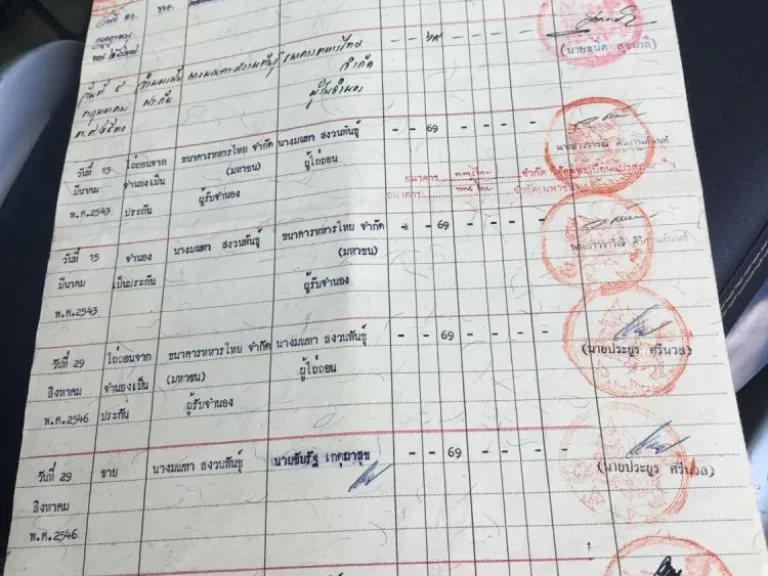 วันที่ ๙ กรกฎาคม พ.ศ.๒๕๓๐
ประกัน
ธนาคารทหารไทย จำกัด
ผู้รับจำนอง
วันที่ 15 ไถ่ถอนจาก ธนาคารทหารไทย จำกัด นางมณฑา สงวนพันธุ์ - - 69 - - - -
มีนาคม จำนองเป็น (มหาชน) ผู้ไถ่ถอน
พ.ศ.2543 ประกัน ผู้รับจำนอง
ธนาคาร ทหารไทย จำกัด
ธนาคาร ทหารไทย จำกัด(มหาชน)
วันที่ 15 จำนอง นางมณฑา สงวนพันธุ์ ธนาคารทหารไทย จำกัด - - 69 - - - -
มีนาคม เป็นประกัน (มหาชน)
พ.ศ.2543 ผู้รับจำนอง
วันที่ 29 ไถ่ถอนจาก ธนาคารทหารไทย จำกัด นางมณฑา สงวนพันธุ์ - - 69 - - - -
สิงหาคม จำนองเป็น (มหาชน) ผู้ไถ่ถอน
พ.ศ.2546 ประกัน ผู้รับจำนอง
(นายประยูร ศรีนวล)
วันที่ 29 ขาย นางมณฑา สงวนพันธุ์ นายชัยรัฐ เกตุผาสุข - - 69 - - - -
สิงหาคม
พ.ศ.2546
(นายประยูร ศรีนวล)